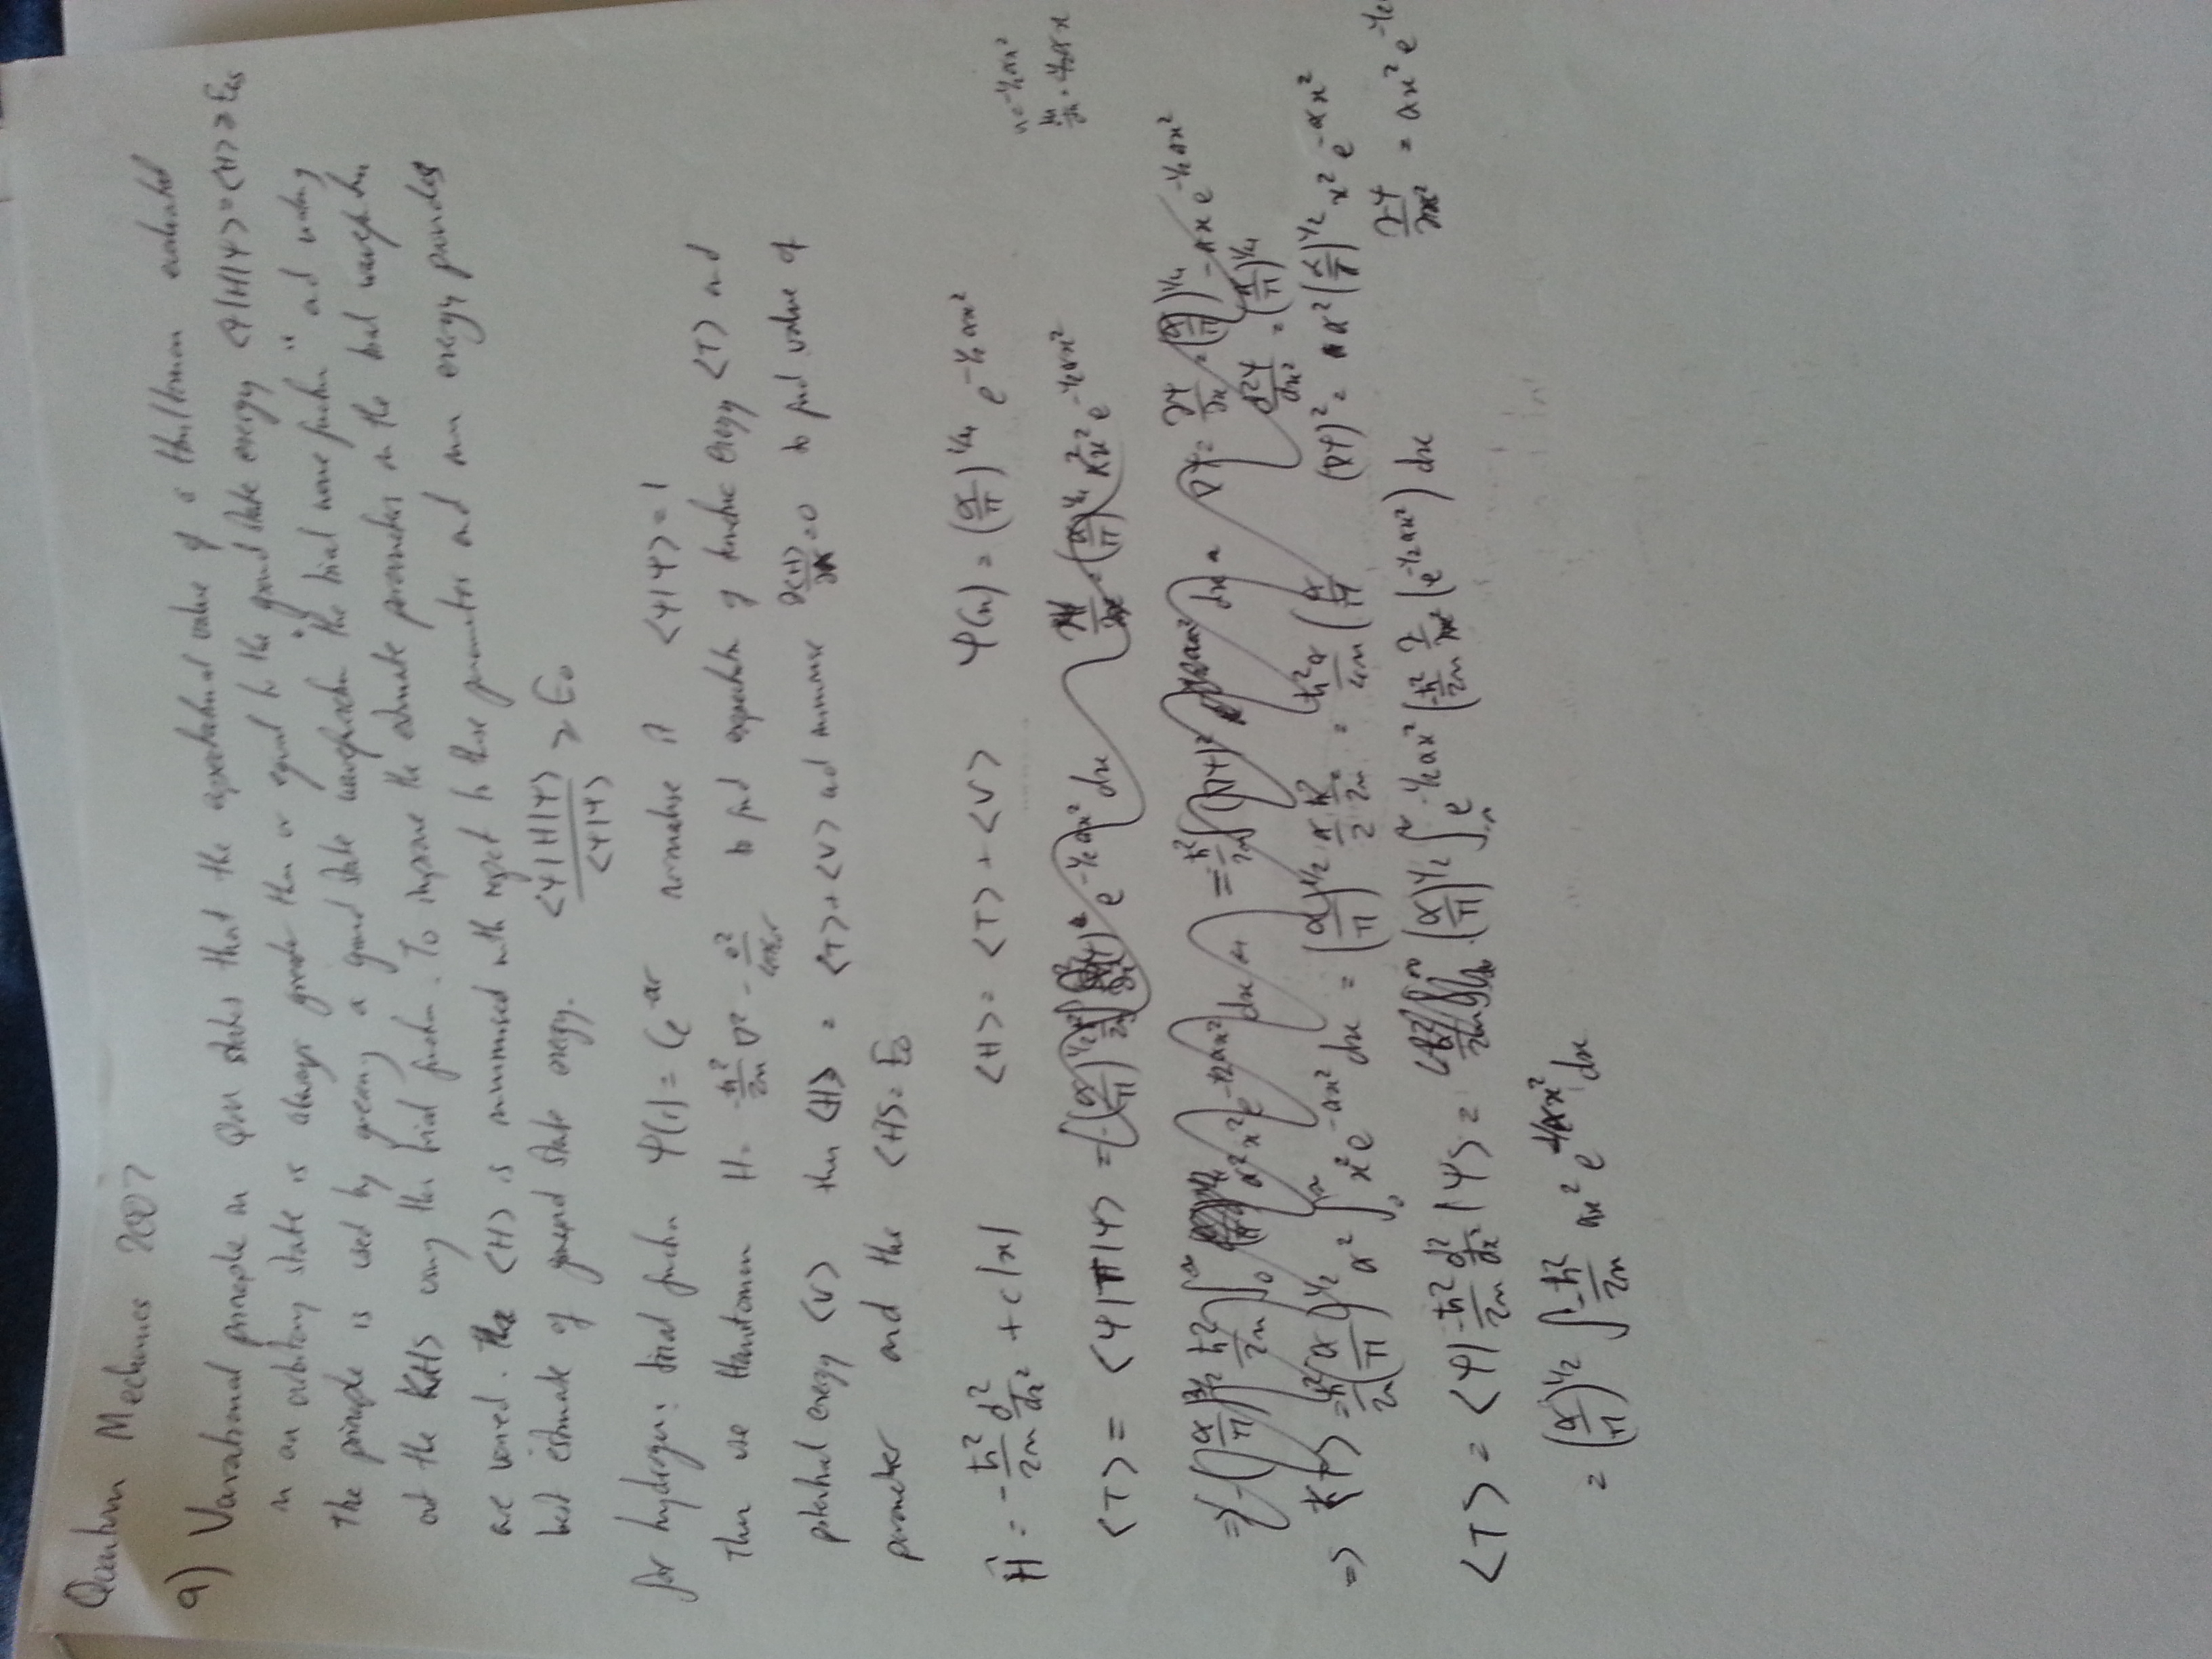 Quantum Mechanics 2007
9) Variational principle in QM states that the expectational value of a Hamiltonian evaluated
in an arbitrary state is always greater than or equal to the ground state energy <ψ|H|ψ> = <H> ≥ EGS
The principle is used by guessing a ground state wavefunction "the trial wave function" and working
out the <H> using this trial function. To improve the estimate parameters in the trial wavefunction
are varied. The <H> is minimised with respect to these parameters and min energy provides
best estimate of ground state energy. <ψ|H|ψ> / <ψ|ψ> ≥ E₀
for hydrogen: trial function ψ(r) = Ce^-ar normalise it <ψ|ψ> = 1
Then use Hamiltonian H = -ħ²/2m ∇² - e²/4πε₀r to find expectation of kinetic energy <T> and
potential energy <V> then <H> = <T> + <V> and minimise ∂<H>/∂α = 0 to find value of
parameter and the <H> = E₀
Ĥ = -ħ²/2m d²/dx² + c|x| <H> = <T> + <V> ψ(x) = (α/π)^1/4 e^-1/2 αx²
u = -1/2 αx²
<T> = <ψ|T|ψ> = e^-1/2 αx² dx
∇ψ = ∂ψ/∂x = (α/π)^1/4 - αx e^-1/2 αx²
d²ψ/dx² = (α/π)^1/4
=> <T> = ħ²/2m (α/π)^1/2 α² ∫ x² e^-αx² dx = (α/π)^1/2 α/2 ħ²/2m = ħ²α/4m (α/π (∇ψ)² = α² (α/π)^1/2 x² e^-αx²
∂ψ/∂x² = αx² e^-1/2
<T> = <ψ| -ħ²/2m d²/dx² |ψ> = (α/π)^1/2 ∫ e^-1/2 αx² (-ħ²/2m ∂/∂x² (e^-1/2 αx²) dx
= (α/π)^1/2 ∫ -ħ²/2m αx² e^-αx² dx